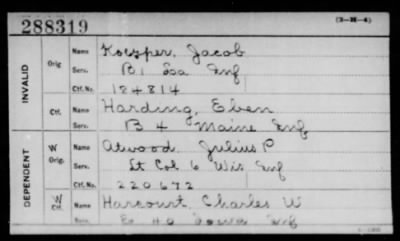 288319
(3-H-4)
INVALID
Orig
Name Koczper, Jacob
Serv. B 1 Ia Inf
Ctf. No. 124814
Ctf. Name Harding, Eben
Serv. B 4 Maine Inf
DEPENDENT
W Orig. Name Atwood, Julius P
Serv. Lt Col 6 Wis Inf
Ctf. No. 220672
W Ctf. Name Harcourt, Charles W
40 Iowa Inf